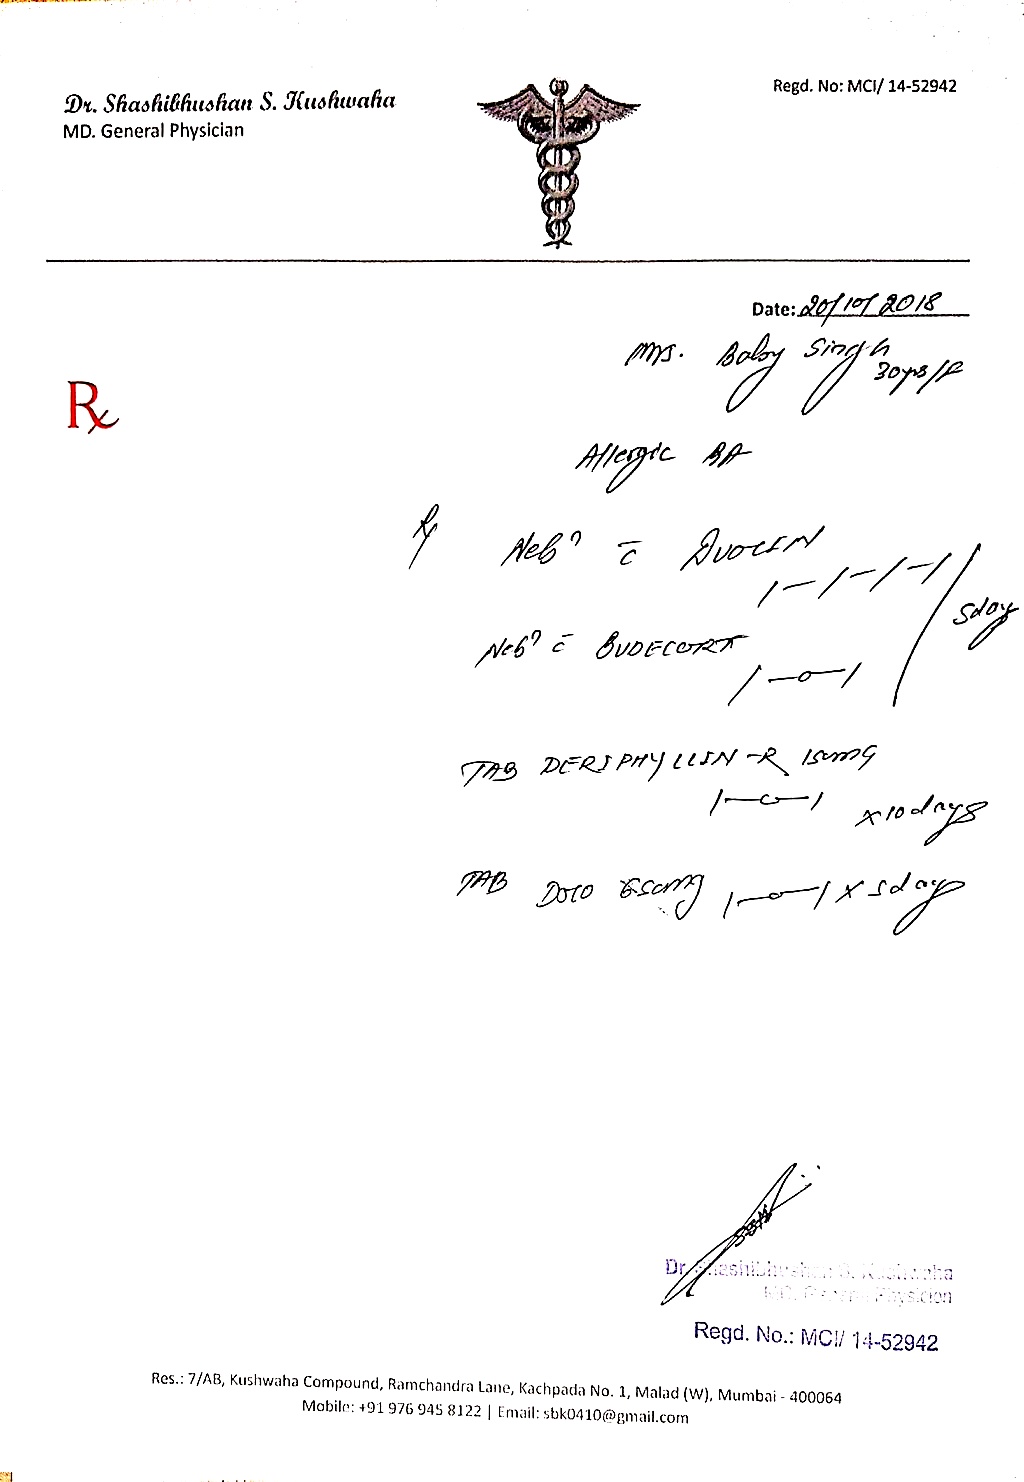 Dr. Shashibhushan S. Kushwaha
MD. General Physician
Regd. No: MCI/ 14-52942
Date: 20/10/2018
Mrs. Baby Singh
30yrs/F
Rx
Allergic BA
Rx Neb? c̄ DUOLIN
1-1-1-1
5day
Neb? c̄ BUDECORT
1-0-1
TAB DERIPHYLLIN-R 150mg
1-0-1 x10days
TAB DOLO 650mg 1-0-1 x 5day
Dr. Shashibhushan S. Kushwaha
MD. General Physician
Regd. No.: MCI/ 14-52942
Res.: 7/AB, Kushwaha Compound, Ramchandra Lane, Kachpada No. 1, Malad (W), Mumbai - 400064
Mobile: +91 976 945 8122 | Email: sbk0410@gmail.com